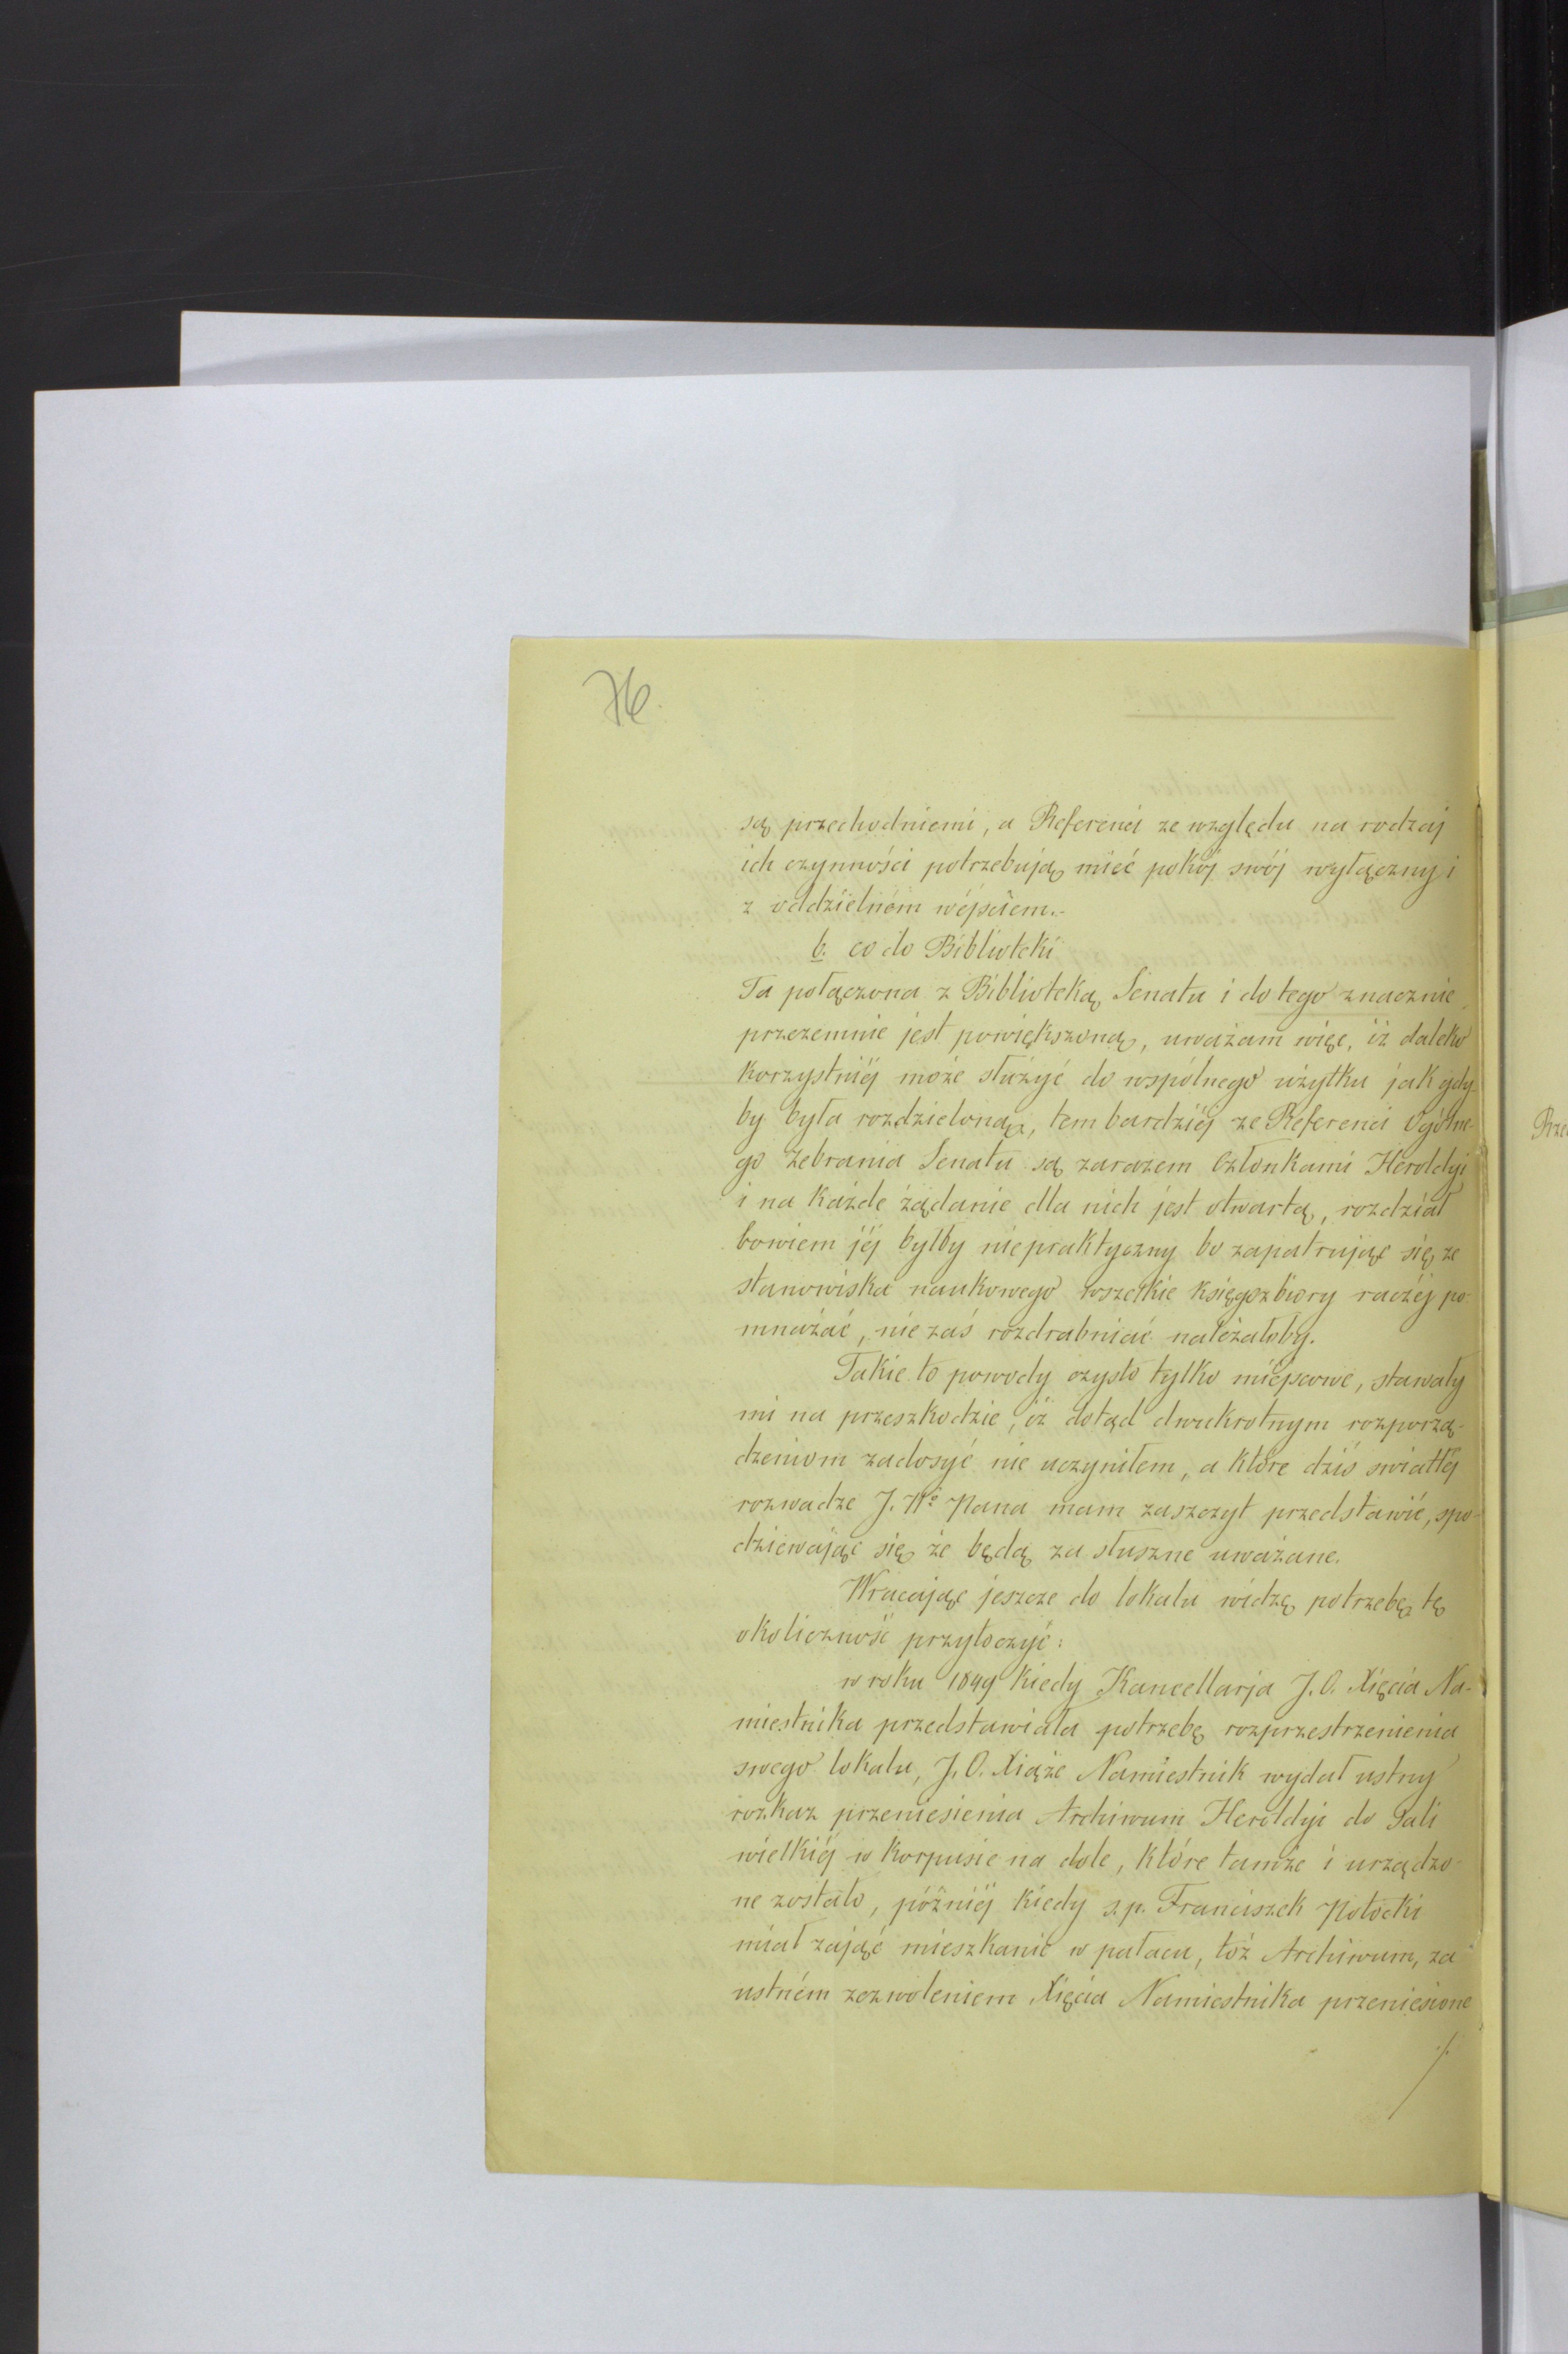 76.
są przechodniemi, a Referenci ze względu na rodzaj
ich czynności potrzebują mieć pokój swój wyłączny i
z oddzielném wéjściem.-
b. co do Biblioteki
Ta połączona z Biblioteką Senatu i do tego znacznie
przezemnie jest powiększoną, uważam więc, iż daleko
korzystniéj może służyć do wspólnego użytku jak gdy
by była rozdzieloną, tem bardziéj ze Referenci Ogólne-
go Zebrania Senatu są zarazem Członkami Heroldyi
i na każde żądanie dla nich jest otwartą, rozdział
bowiem jéj byłby niepraktyczny bo zapatrując się ze
stanowiska naukowego wszelkie księgozbiory raczéj po-
mnażać, nie zaś rozdrabniać należałoby.
Takie to powody czysto tylko miéjscowe, stawały
mi na przeszkodzie, iż dotąd dwukrotnym rozporzą-
dzeniom zadosyć nie uczyniłem, a które dziś swiatłéj
rozwadze J. Wo Pana mam zaszczyt przedstawić, spo-
dziewając się że będą za słuszne uważane.
Wracając jeszcze do lokalu widzę potrzebę tę
okoliczność przytoczyć:
w roku 1849 kiedy Kancellarja J. O. Xięcia Na-
miestnika przedstawiała potrzebę rozprzestrzenienia
swego lokalu, J. O. Xiąże Namiestnik wydał ustny
rozkaz przeniesienia Archiwum Heroldyi do Sali
wielkiéj w korpusie na dole, które tamże i urządzo-
ne zostało, późniéj kiedy s.p. Franciszek Potocki
miał zająć mieszkanie w pałacu, toż Archiwum, za
ustném zezwoleniem Xięcia Namiestnika przeniesione
./.